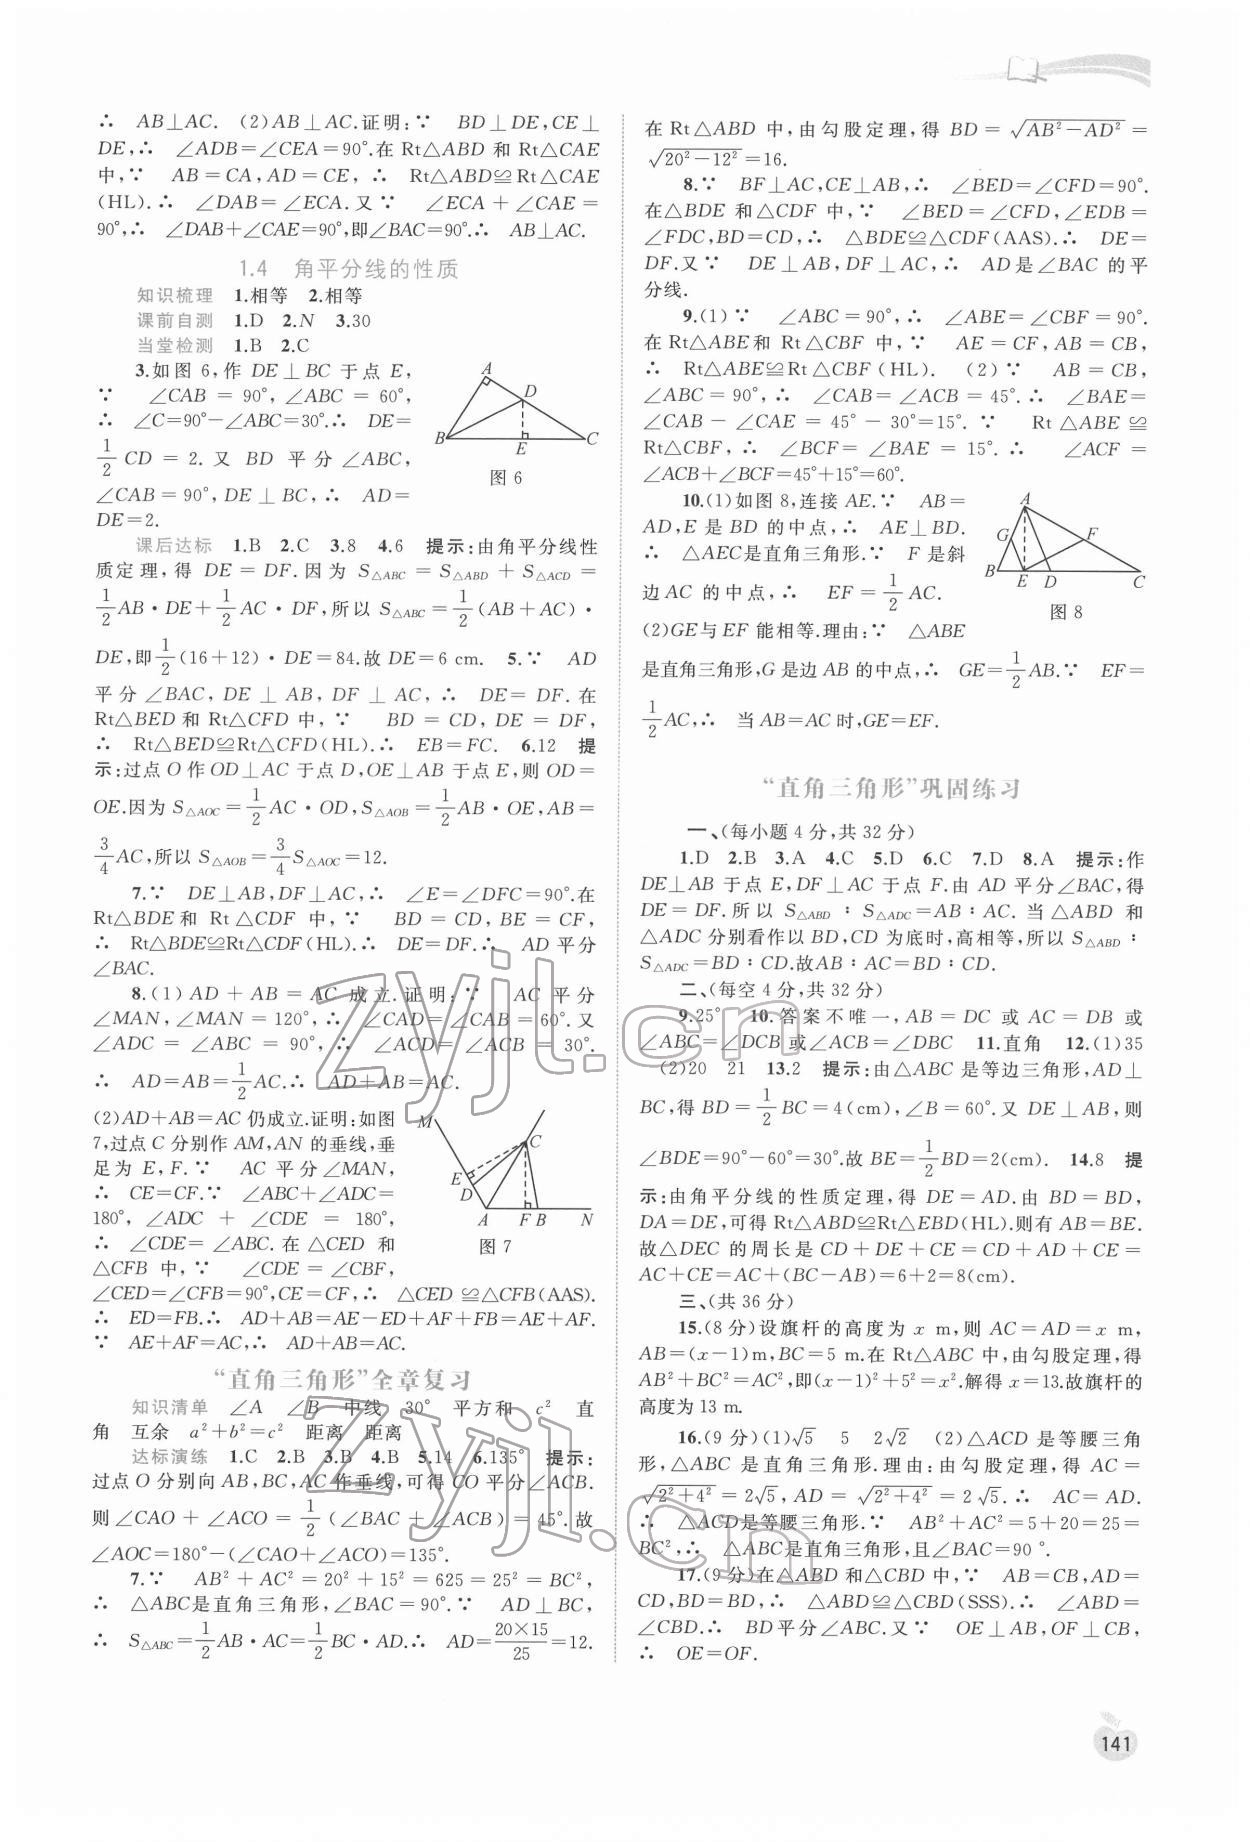 ∴ AB⊥AC. (2)AB⊥AC.证明:∵ BD⊥DE,CE⊥
DE,∴ ∠ADB=∠CEA=90°.在Rt△ABD 和 Rt△CAE
中,∵ AB=CA,AD=CE, ∴ Rt△ABD≌Rt△CAE
(HL).∴ ∠DAB=∠ECA.又∵ ∠ECA+∠CAE=
90°,∴ ∠DAB+∠CAE=90°,即∠BAC=90°.∴ AB⊥AC.
1.4 角平分线的性质
知识梳理 1.相等 2.相等
课前自测 1.D 2.N 3.30
当堂检测 1.B 2.C
3.如图 6,作 DE⊥BC 于点 E,
∵ ∠CAB = 90°,∠ABC = 60°,
∴ ∠C=90°-∠ABC=30°.∴ DE=
1/2 CD = 2. 又 BD 平分∠ABC,
∠CAB = 90°,DE⊥BC,∴ AD=
DE=2.
A D B E C
图 6
课后达标 1.B 2.C 3.8 4.6 提示:由角平分线性
质定理,得 DE=DF.因为 S△ABC=S△ABD+S△ACD=
1/2 AB·DE+1/2 AC·DF,所以 S△ABC=1/2(AB+AC)·
DE,即1/2(16+12)·DE=84.故 DE=6 cm. 5.∵ AD
平分∠BAC, DE⊥AB, DF⊥AC,∴ DE=DF.在
Rt△BED 和 Rt△CFD 中,∵ BD=CD,DE=DF,
∴ Rt△BED≌Rt△CFD(HL).∴ EB=FC. 6.12 提
示:过点 O 作 OD⊥AC 于点 D,OE⊥AB 于点 E,则 OD=
OE.因为 S△AOC=1/2 AC·OD,S△AOB=1/2 AB·OE,AB=
3/4 AC,所以 S△AOB=3/4 S△AOC=12.
7.∵ DE⊥AB,DF⊥AC,∴ ∠E=∠DFC=90°.在
Rt△BDE 和 Rt△CDF 中,∵ BD=CD,BE=CF,
∴ Rt△BDE≌Rt△CDF(HL).∴ DE=DF.∴ AD 平分
∠BAC.
8.(1) AD+AB=AC 成立.证明:∵ AC 平分
∠MAN,∠MAN=120°,∴ ∠CAD=∠CAB=60°.又
∠ADC=∠ABC=90°,∴ ∠ACD=∠ACB=30°.
∴ AD=AB=1/2 AC.∴ AD+AB=AC.
(2)AD+AB=AC 仍成立.证明:如图
7,过点 C 分别作 AM,AN 的垂线,垂
足为 E,F.∵ AC 平分∠MAN,
∴ CE=CF.∵ ∠ABC+∠ADC=
180°,∠ADC+∠CDE=180°,
∴ ∠CDE=∠ABC.在△CED 和
△CFB 中,∵ ∠CDE=∠CBF,
∠CED=∠CFB=90°,CE=CF,∴ △CED≌△CFB(AAS).
∴ ED=FB.∴ AD+AB=AE-ED+AF+FB=AE+AF.
∵ AE+AF=AC,∴ AD+AB=AC.
M C E D A F B N
图 7
“直角三角形”全章复习
知识清单 ∠A ∠B 中线 30° 平方和 c² 直
角 互余 a²+b²=c² 距离 距离
达标演练 1.C 2.B 3.B 4.B 5.14 6.135° 提示:
过点 O 分别向 AB,BC,AC 作垂线,可得 CO 平分∠ACB.
则∠CAO+∠ACO=1/2(∠BAC+∠ACB)=45°.故
∠AOC=180°-(∠CAO+∠ACO)=135°.
7.∵ AB²+AC²=20²+15²=625=25²=BC²,
∴ △ABC是直角三角形,∠BAC=90°.∵ AD⊥BC,
∴ S△ABC=1/2 AB·AC=1/2 BC·AD.∴ AD=20×15/25=12.
在 Rt△ABD 中,由勾股定理,得 BD=√(AB²-AD²)=
√(20²-12²)=16.
8.∵ BF⊥AC,CE⊥AB,∴ ∠BED=∠CFD=90°.
在△BDE 和△CDF 中,∵ ∠BED=∠CFD,∠EDB=
∠FDC,BD=CD,∴ △BDE≌△CDF(AAS).∴ DE=
DF.又∵ DE⊥AB,DF⊥AC,∴ AD是∠BAC 的平
分线.
9.(1)∵ ∠ABC=90°,∴ ∠ABE=∠CBF=90°.
在Rt△ABE和 Rt△CBF 中,∵ AE=CF,AB=CB,
∴ Rt△ABE≌Rt△CBF(HL). (2)∵ AB=CB,
∠ABC=90°,∴ ∠CAB=∠ACB=45°.∴ ∠BAE=
∠CAB-∠CAE=45°-30°=15°.∵ Rt△ABE≌
Rt△CBF,∴ ∠BCF=∠BAE=15°.∴ ∠ACF=
∠ACB+∠BCF=45°+15°=60°.
10.(1)如图 8,连接 AE.∵ AB=
AD,E 是 BD 的中点,∴ AE⊥BD.
∴ △AEC是直角三角形.∵ F 是斜
边 AC 的中点,∴ EF=1/2 AC.
(2)GE与 EF 能相等.理由:∵ △ABE
是直角三角形,G 是边 AB 的中点,∴ GE=1/2 AB.∵ EF=
1/2 AC,∴ 当 AB=AC 时,GE=EF.
A G F B E D C
图 8
“直角三角形”巩固练习
一、(每小题 4 分,共 32 分)
1.D 2.B 3.A 4.C 5.D 6.C 7.D 8.A 提示:作
DE⊥AB 于点 E,DF⊥AC 于点 F.由 AD 平分∠BAC,得
DE=DF.所以 S△ABD∶S△ADC=AB∶AC.当△ABD 和
△ADC 分别看作以 BD,CD 为底时,高相等,所以 S△ABD∶
S△ADC=BD∶CD.故AB∶AC=BD∶CD.
二、(每空 4 分,共 32 分)
9.25° 10.答案不唯一,AB=DC 或 AC=DB 或
∠ABC=∠DCB或∠ACB=∠DBC 11.直角 12.(1)35
(2)20 21 13.2 提示:由△ABC 是等边三角形,AD⊥
BC,得 BD=1/2 BC=4(cm),∠B=60°.又 DE⊥AB,则
∠BDE=90°-60°=30°.故 BE=1/2 BD=2(cm). 14.8 提
示:由角平分线的性质定理,得 DE=AD.由 BD=BD,
DA=DE,可得 Rt△ABD≌Rt△EBD(HL).则有 AB=BE.
故△DEC 的周长是 CD+DE+CE=CD+AD+CE=
AC+CE=AC+(BC-AB)=6+2=8(cm).
三、(共 36 分)
15.(8 分)设旗杆的高度为 x m,则 AC=AD=x m,
AB=(x-1)m,BC=5 m.在 Rt△ABC 中,由勾股定理,得
AB²+BC²=AC²,即(x-1)²+5²=x².解得 x=13.故旗杆的
高度为 13 m.
16.(9 分)(1)√5 5 2√2 (2)△ACD 是等腰三角
形,△ABC 是直角三角形.理由:由勾股定理,得 AC=
√(2²+4²)=2√5,AD=√(2²+4²)=2√5.∴ AC=AD.
∴ △ACD是等腰三角形.∵ AB²+AC²=5+20=25=
BC²,∴ △ABC是直角三角形,且∠BAC=90°.
17.(9 分)在△ABD 和△CBD 中,∵ AB=CB,AD=
CD,BD=BD,∴ △ABD≌△CBD(SSS).∴ ∠ABD=
∠CBD.∴ BD平分∠ABC.又∵ OE⊥AB,OF⊥CB,
∴ OE=OF.
zyjl.cn
zyjl.cn
141